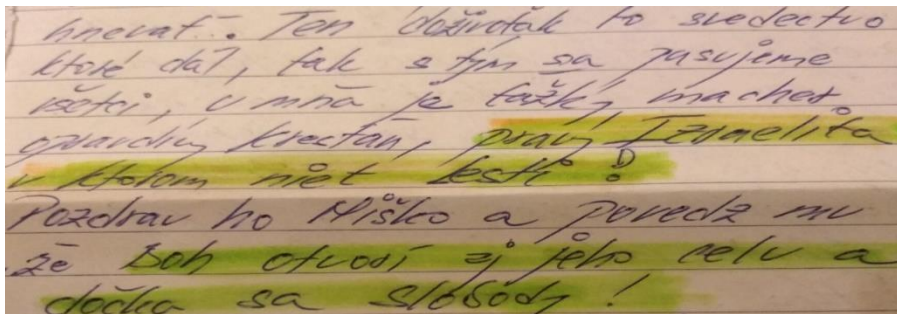 hnevať. Ten doživoťák to svedectvo
ktoré dal, tak s tým sa pasujeme
všetci, u mňa je ťažký macher
opravdivý kresťan, pravý Izraelita
v ktorom niet ľesti!
Pozdrav ho Miško a povedz mu
že Boh otvorí aj jeho celu a
dočká sa slobody!